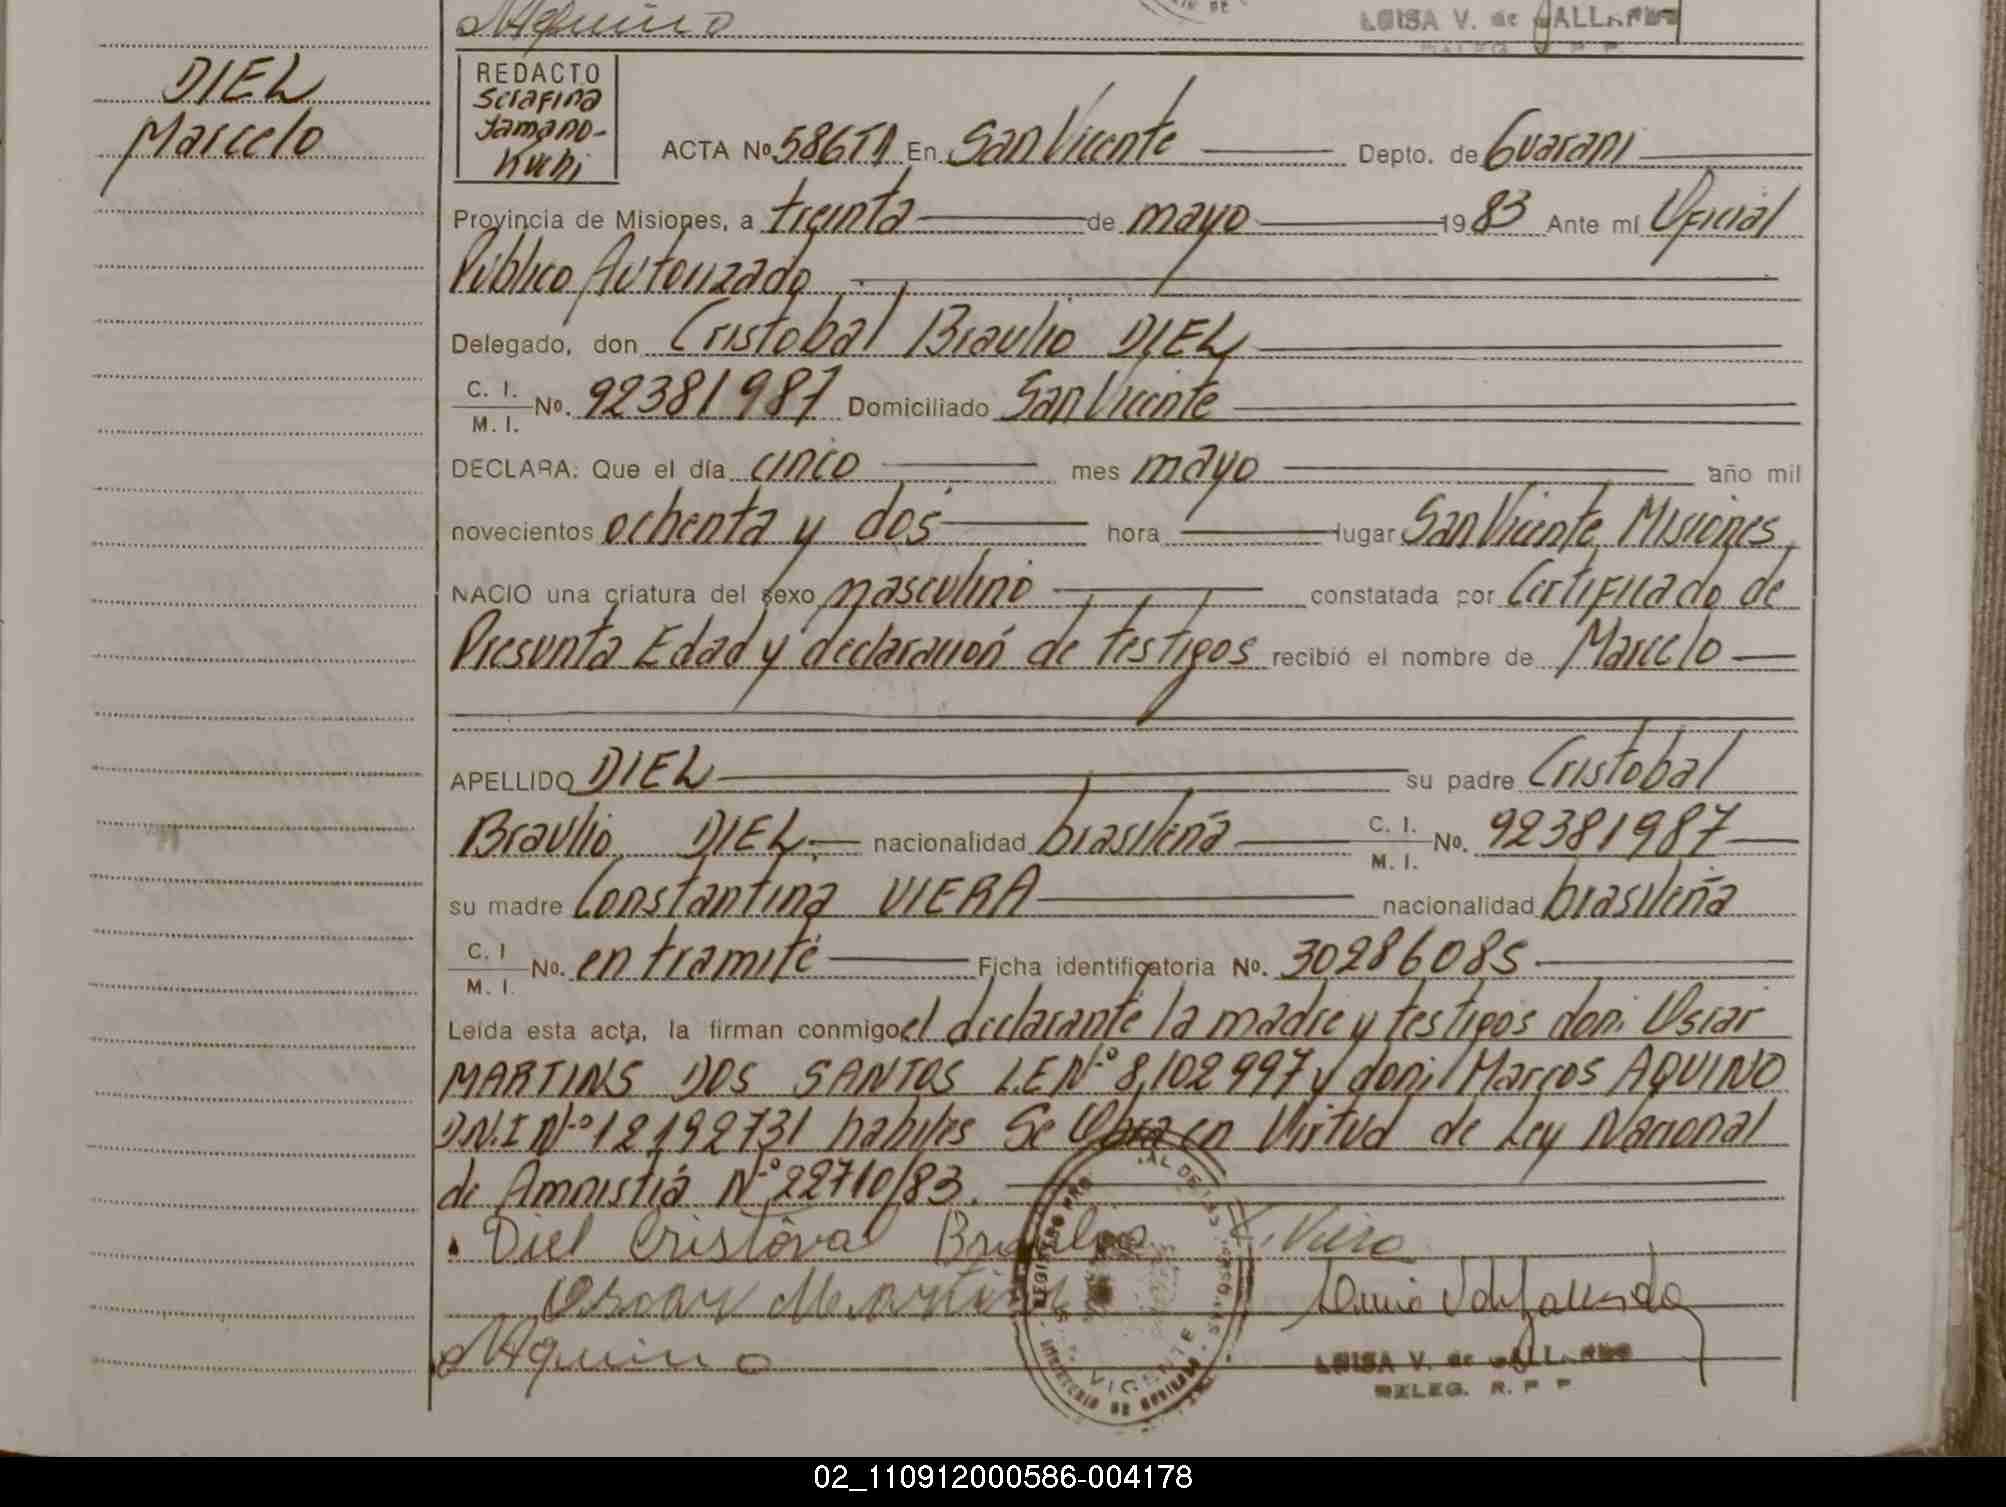 MAquino
LUISA V. de GALLARDO
DELEG. R. P. P.
DIEL
Marcelo
REDACTO
Serafina
Yamano-
Kuchi
ACTA Nº 586TA En San Vicente Depto. de Guarani
Provincia de Misiones, a treinta de mayo 1983 Ante mí Oficial
Público Autorizado
Delegado, don Cristobal Braulio DIEL
C. I.
M. I. No. 92381987 Domiciliado San Vicente
DECLARA: Que el día cinco mes mayo año mil
novecientos ochenta y dos hora lugar San Vicente, Misiones
NACIO una criatura del sexo masculino constatada por Certificado de
Presunta Edad y declaración de testigos recibió el nombre de Marcelo
APELLIDO DIEL su padre Cristobal
Braulio DIEL nacionalidad brasileña C. I.
M. I. No. 92381987
su madre Constantina VIERA nacionalidad brasileña
C. I
M. I. No. en tramite Ficha identificatoria No. 30286085
Leída esta acta, la firman conmigo el declarante la madre y testigos don: Oscar
MARTINS DOS SANTOS L.E Nº 8,102997 y don: Marcos AQUINO
D.N.I Nº 12192731 habiles Se Obra en Virtud de Ley Nacional
de Amnistia Nº 22710/83.
Diel Cristóva C. Viera
Oscar Martins
MAquino
VICENTE
LUISA V. de GALLARDO
DELEG. R. P. P
02_110912000586-004178